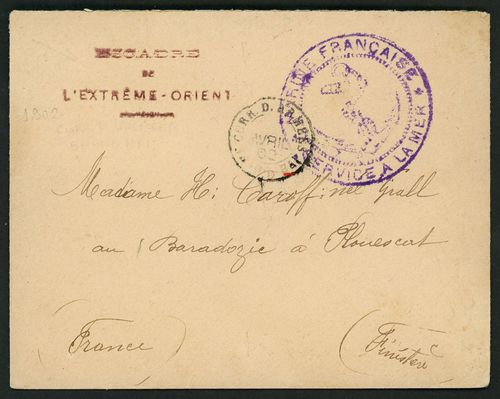 ESCADRE
DE
L'EXTRÊME-ORIENT
FRANÇAISE
SERVICE À LA MER
CORR. D. ARMEES
AVRIL
Madame H. Caroff née Grall
au Baradozic à Plouescat
(France)
(Finistère)